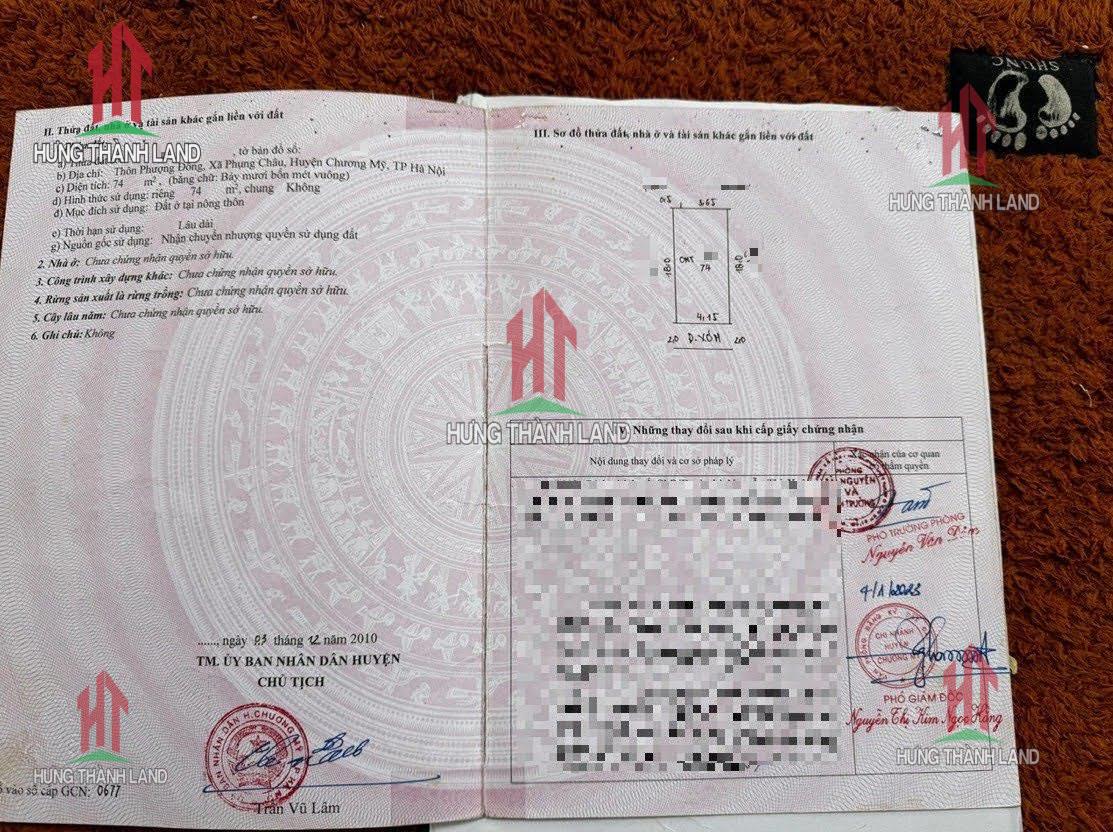 II. Thửa đất, nhà ở và tài sản khác gắn liền với đất
, tờ bản đồ số:
b) Địa chỉ: Thôn Phượng Đồng, Xã Phụng Châu, Huyện Chương Mỹ, TP Hà Nội
c) Diện tích: 74 m², (bằng chữ: Bảy mươi bốn mét vuông)
d) Hình thức sử dụng: riêng 74 m², chung Không
đ) Mục đích sử dụng: Đất ở tại nông thôn
e) Thời hạn sử dụng: Lâu dài
g) Nguồn gốc sử dụng: Nhận chuyển nhượng quyền sử dụng đất
2. Nhà ở: Chưa chứng nhận quyền sở hữu.
3. Công trình xây dựng khác: Chưa chứng nhận quyền sở hữu.
4. Rừng sản xuất là rừng trồng: Chưa chứng nhận quyền sở hữu.
5. Cây lâu năm: Chưa chứng nhận quyền sở hữu.
6. Ghi chú: Không
......, ngày 23 tháng 12 năm 2010
TM. ỦY BAN NHÂN DÂN HUYỆN
CHỦ TỊCH
BAN NHÂN DÂN H.CHƯƠNG MỸ
Trần Vũ Lâm
vào sổ cấp GCN: 0677
III. Sơ đồ thửa đất, nhà ở và tài sản khác gắn liền với đất
0.5 3.65
18.0 ONT 74 18.0
4.15
2.0 Đ.XÓM 2.0
V. Những thay đổi sau khi cấp giấy chứng nhận
Nội dung thay đổi và cơ sở pháp lý
nhận của cơ quan
thẩm quyền
PHÒNG
NGUYÊN
VÀ
TRƯỜNG
PHÓ TRƯỞNG PHÒNG
Nguyễn Văn
4/1/2023
CHI NHÁNH
HUYỆN
CHƯƠNG MỸ
PHÓ GIÁM ĐỐC
Nguyễn Thị Kim Ngọc Hằng
SHUNC
HT
HƯNG THÀNH LAND
HT
HƯNG THÀNH LAND
HT
HƯNG THÀNH LAND
HT
HƯNG THÀNH LAND
HT
HƯNG THÀNH LAND